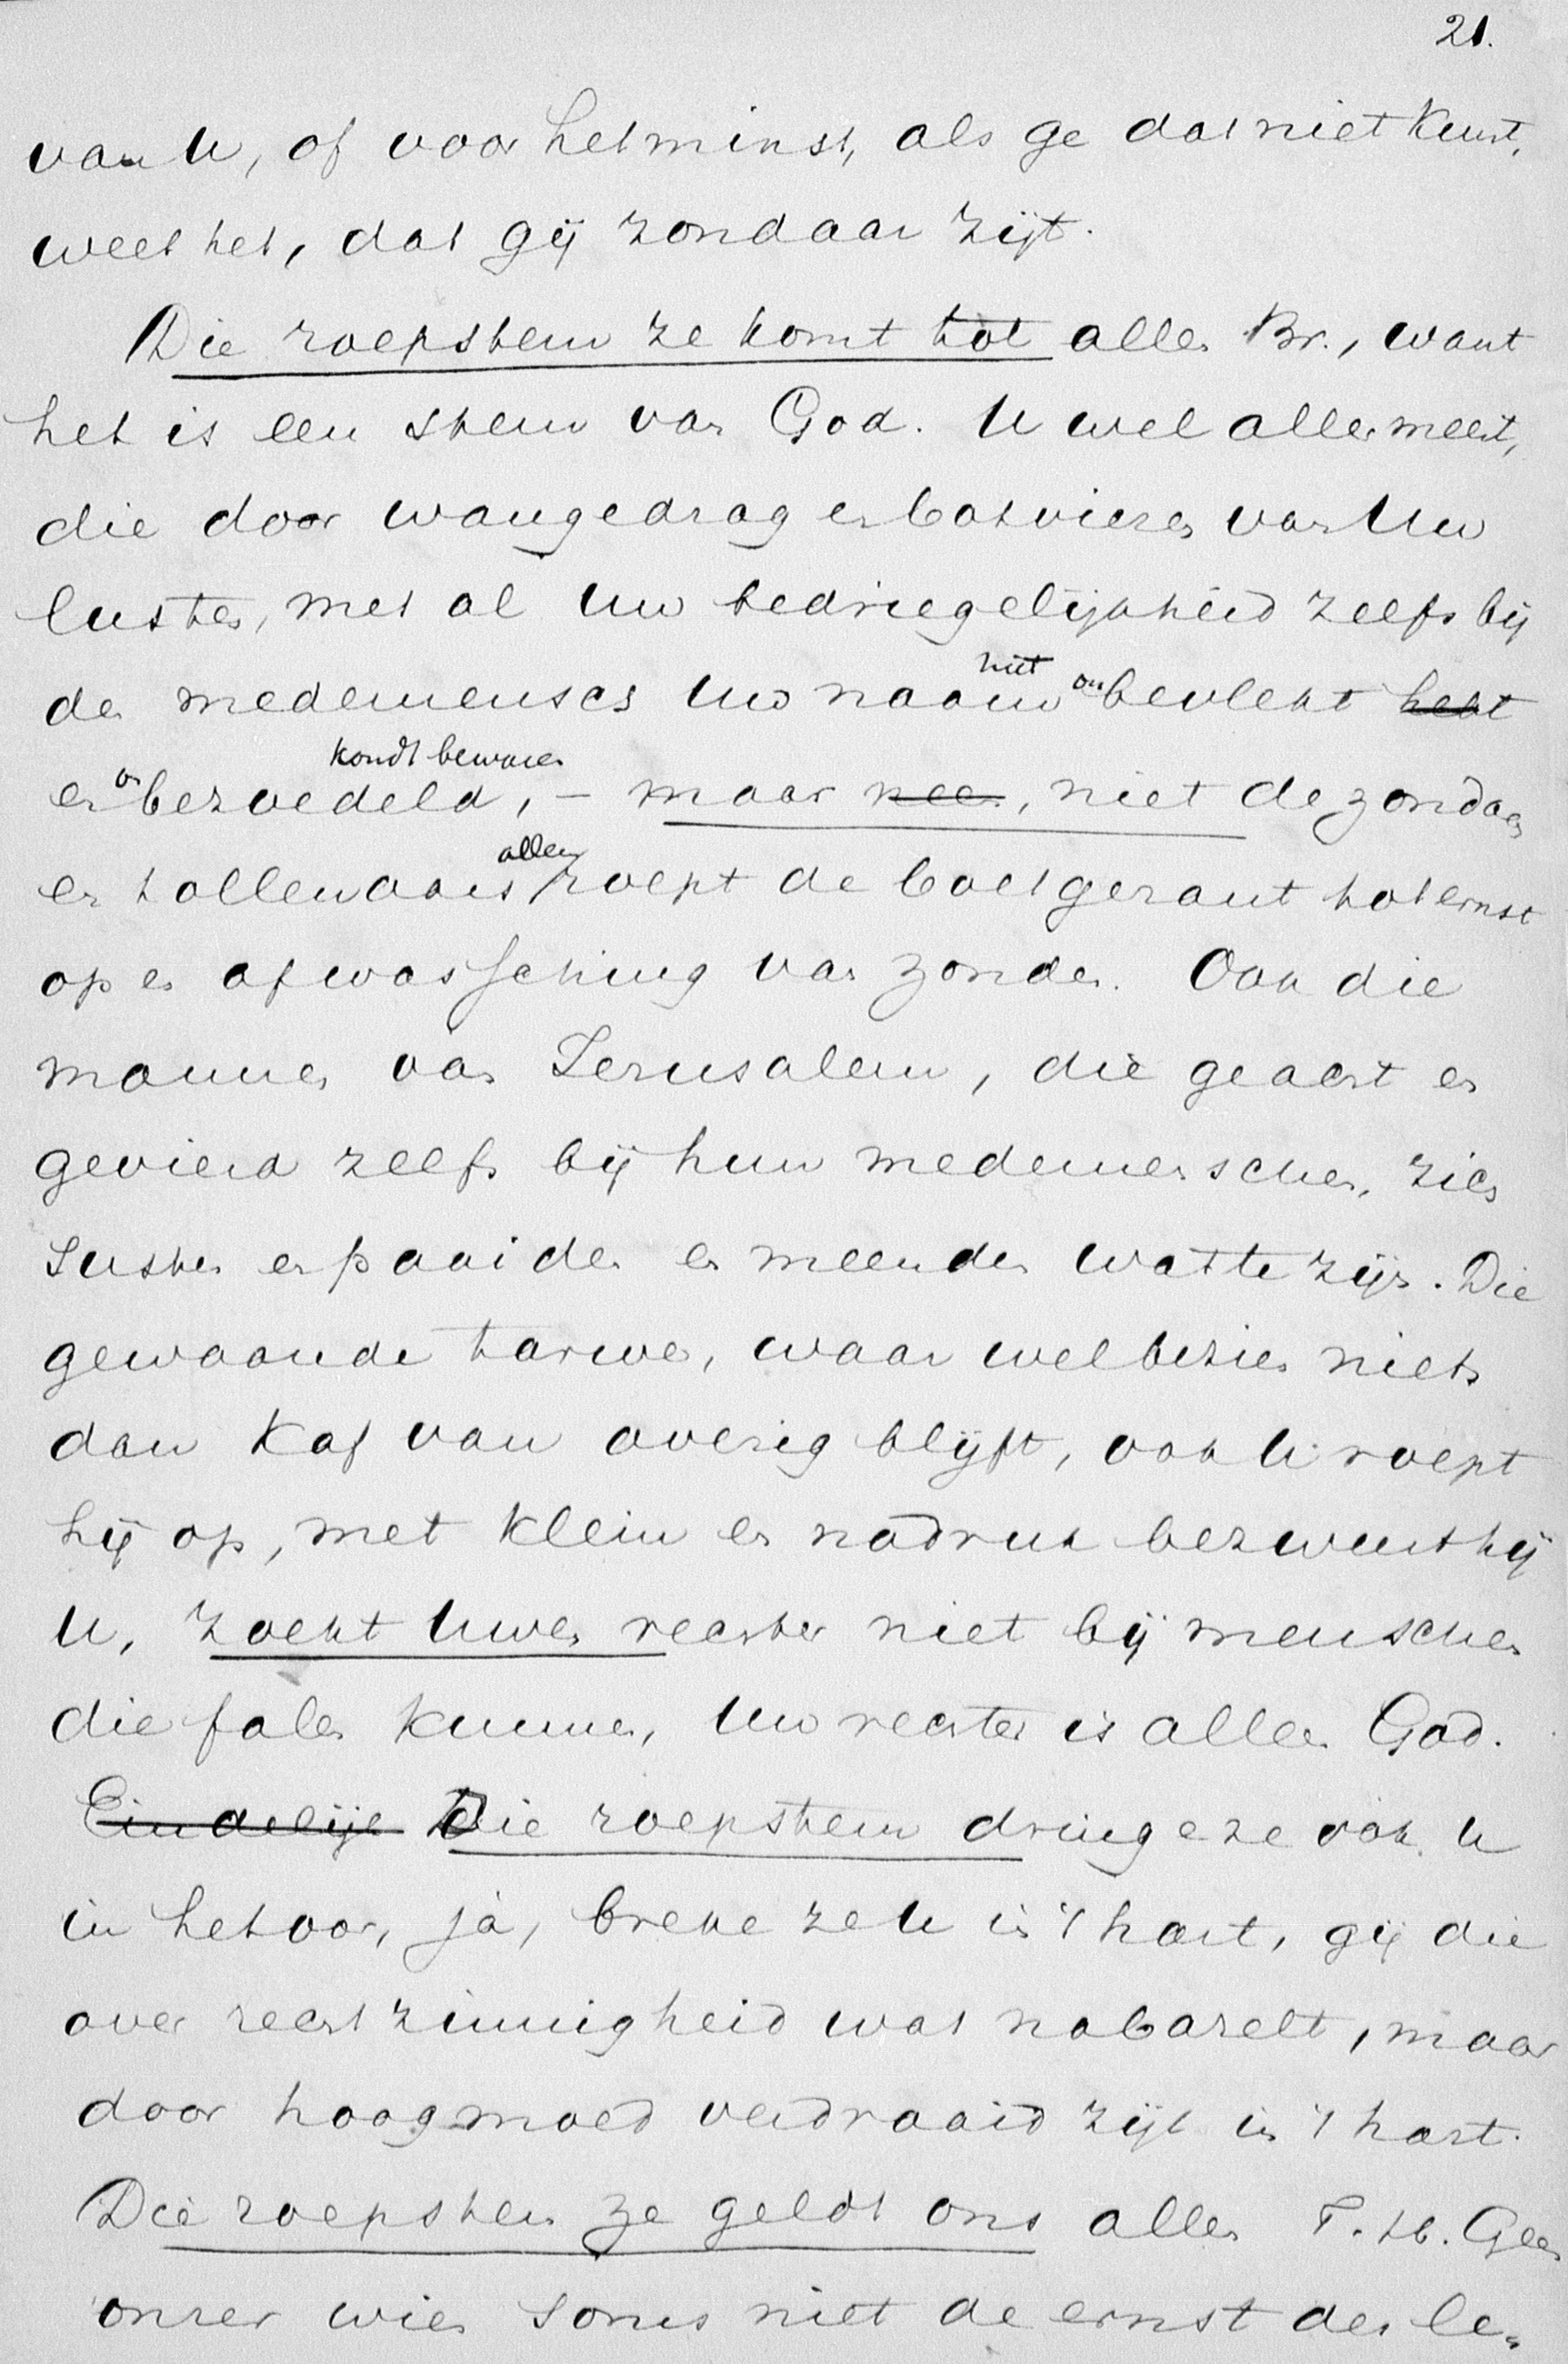 21.
van U, of voor het minst, als ge dat niet kunt,
weet het, dat gij zondaar zijt.
Die roepstem ze komt tot allen Br., want
het is een stem van God. U wel allermeest,
die door wangedrag en botvieren van Uw
lusten, met al Uw bedriegelijkheid zelfs bij
niet on
de medemensch Uw naam bevlekt hebt
kondt bewaren
en onbezoedeld, – maar neen, niet de zondaars
alleen
en tollenaars roept de boetgezant tot ernst
op en afwassching van zonden. Ook die
mannen van Jeruzalem, die geacht en
gevierd zelfs bij hun medemenschen, zich
susten en paaiden en meenden wat te zijn. Die
gewaande tarwe, waar wel bezien niets
dan kaf van overig blijft, ook U roept
hij op, met klem en nadruk bezweert hij
U, zoekt Uwen rechter niet bij menschen
die falen kunnen, Uw rechter is alleen God.
Eindelijk Die roepstem dringe ze ook U
in het oor, ja, breke ze U in 't hart, gij die
over rechtzinnigheid wat nabazelt, maar
door hoogmoed verdraaid zijt in 't hart.
Die roepstem ze geldt ons allen T. H. Geen
onzer wien soms niet de ernst des le-